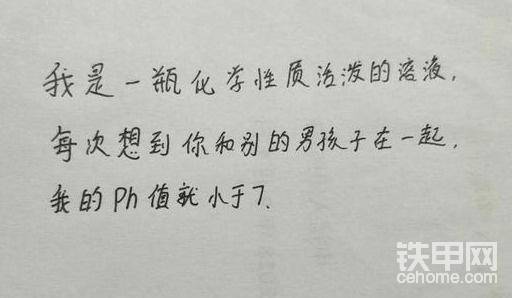 我是一瓶化学性质活泼的溶液，
每次想到你和别的男孩子在一起，
我的Ph值就小于7.
铁甲网
cehome.com